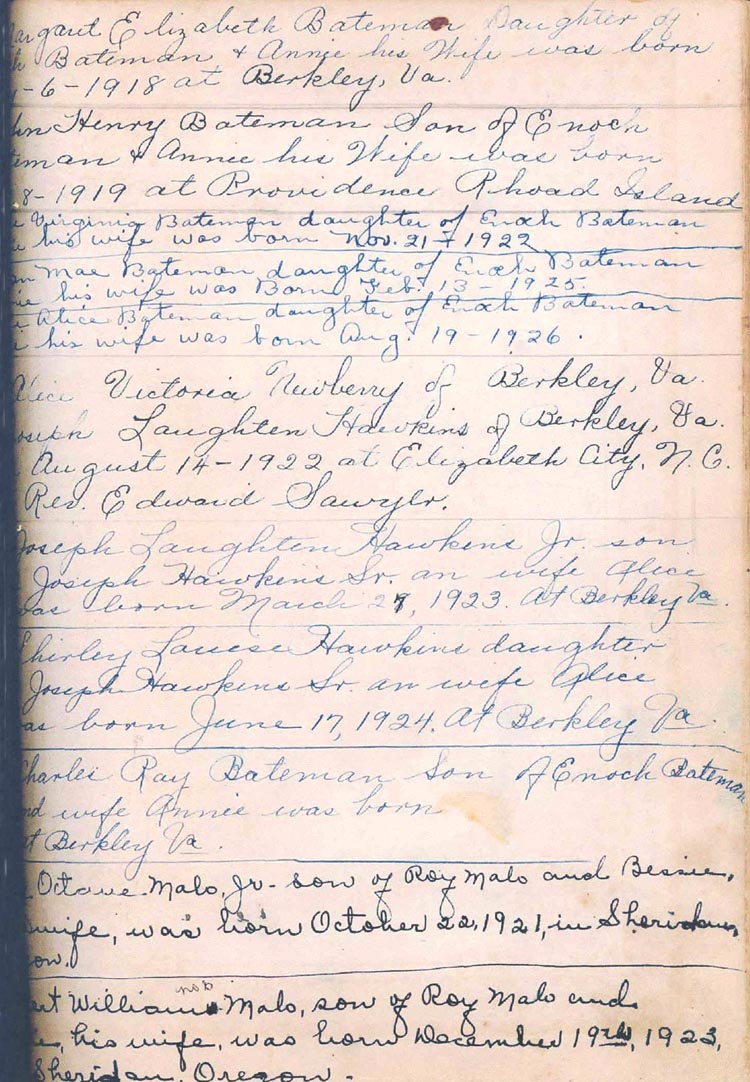 argaut Elizabeth Bateman Daughter of
h Bateman & Annie his Wife was born
-6-1918 at Berkley, Va.
hn Henry Bateman Son of Enoch
teman & Annie his Wife was born
8-1919 at Providence Rhoad Island
e Virginia Bateman daughter of Enoch Bateman
his wife was born Nov. 21-1922
an Mae Bateman daughter of Enoch Bateman
nie his wife was Born Feb. 13-1925.
Alice Bateman daughter of Enoch Bateman
his wife was born Aug. 19-1926.
Alice Victoria Newberry of Berkley, Va.
oseph Laughten Hawkins of Berkley, Va.
August 14-1922 at Elizabeth City, N.C.
Rev. Edward Sawyer.
Joseph Laughten Hawkins Jr. son
Joseph Hawkins Sr. an wife Alice
was born March 27, 1923. At Berkley Va.
Shirley Louese Hawkins daughter
Joseph Hawkins Sr. an wife Alice
as born June 17, 1924. At Berkley Va.
Charles Ray Bateman Son of Enoch Bateman
nd wife Annie was born
at Berkley Va.
Octave Malo, Jr- son of Roy Malo and Bessie,
wife, was born October 22, 1921, in Sheridan,
on.
not
ert William Malo, son of Roy Malo and
e, his wife, was born December 19th, 1923,
Sheridan, Oregon.